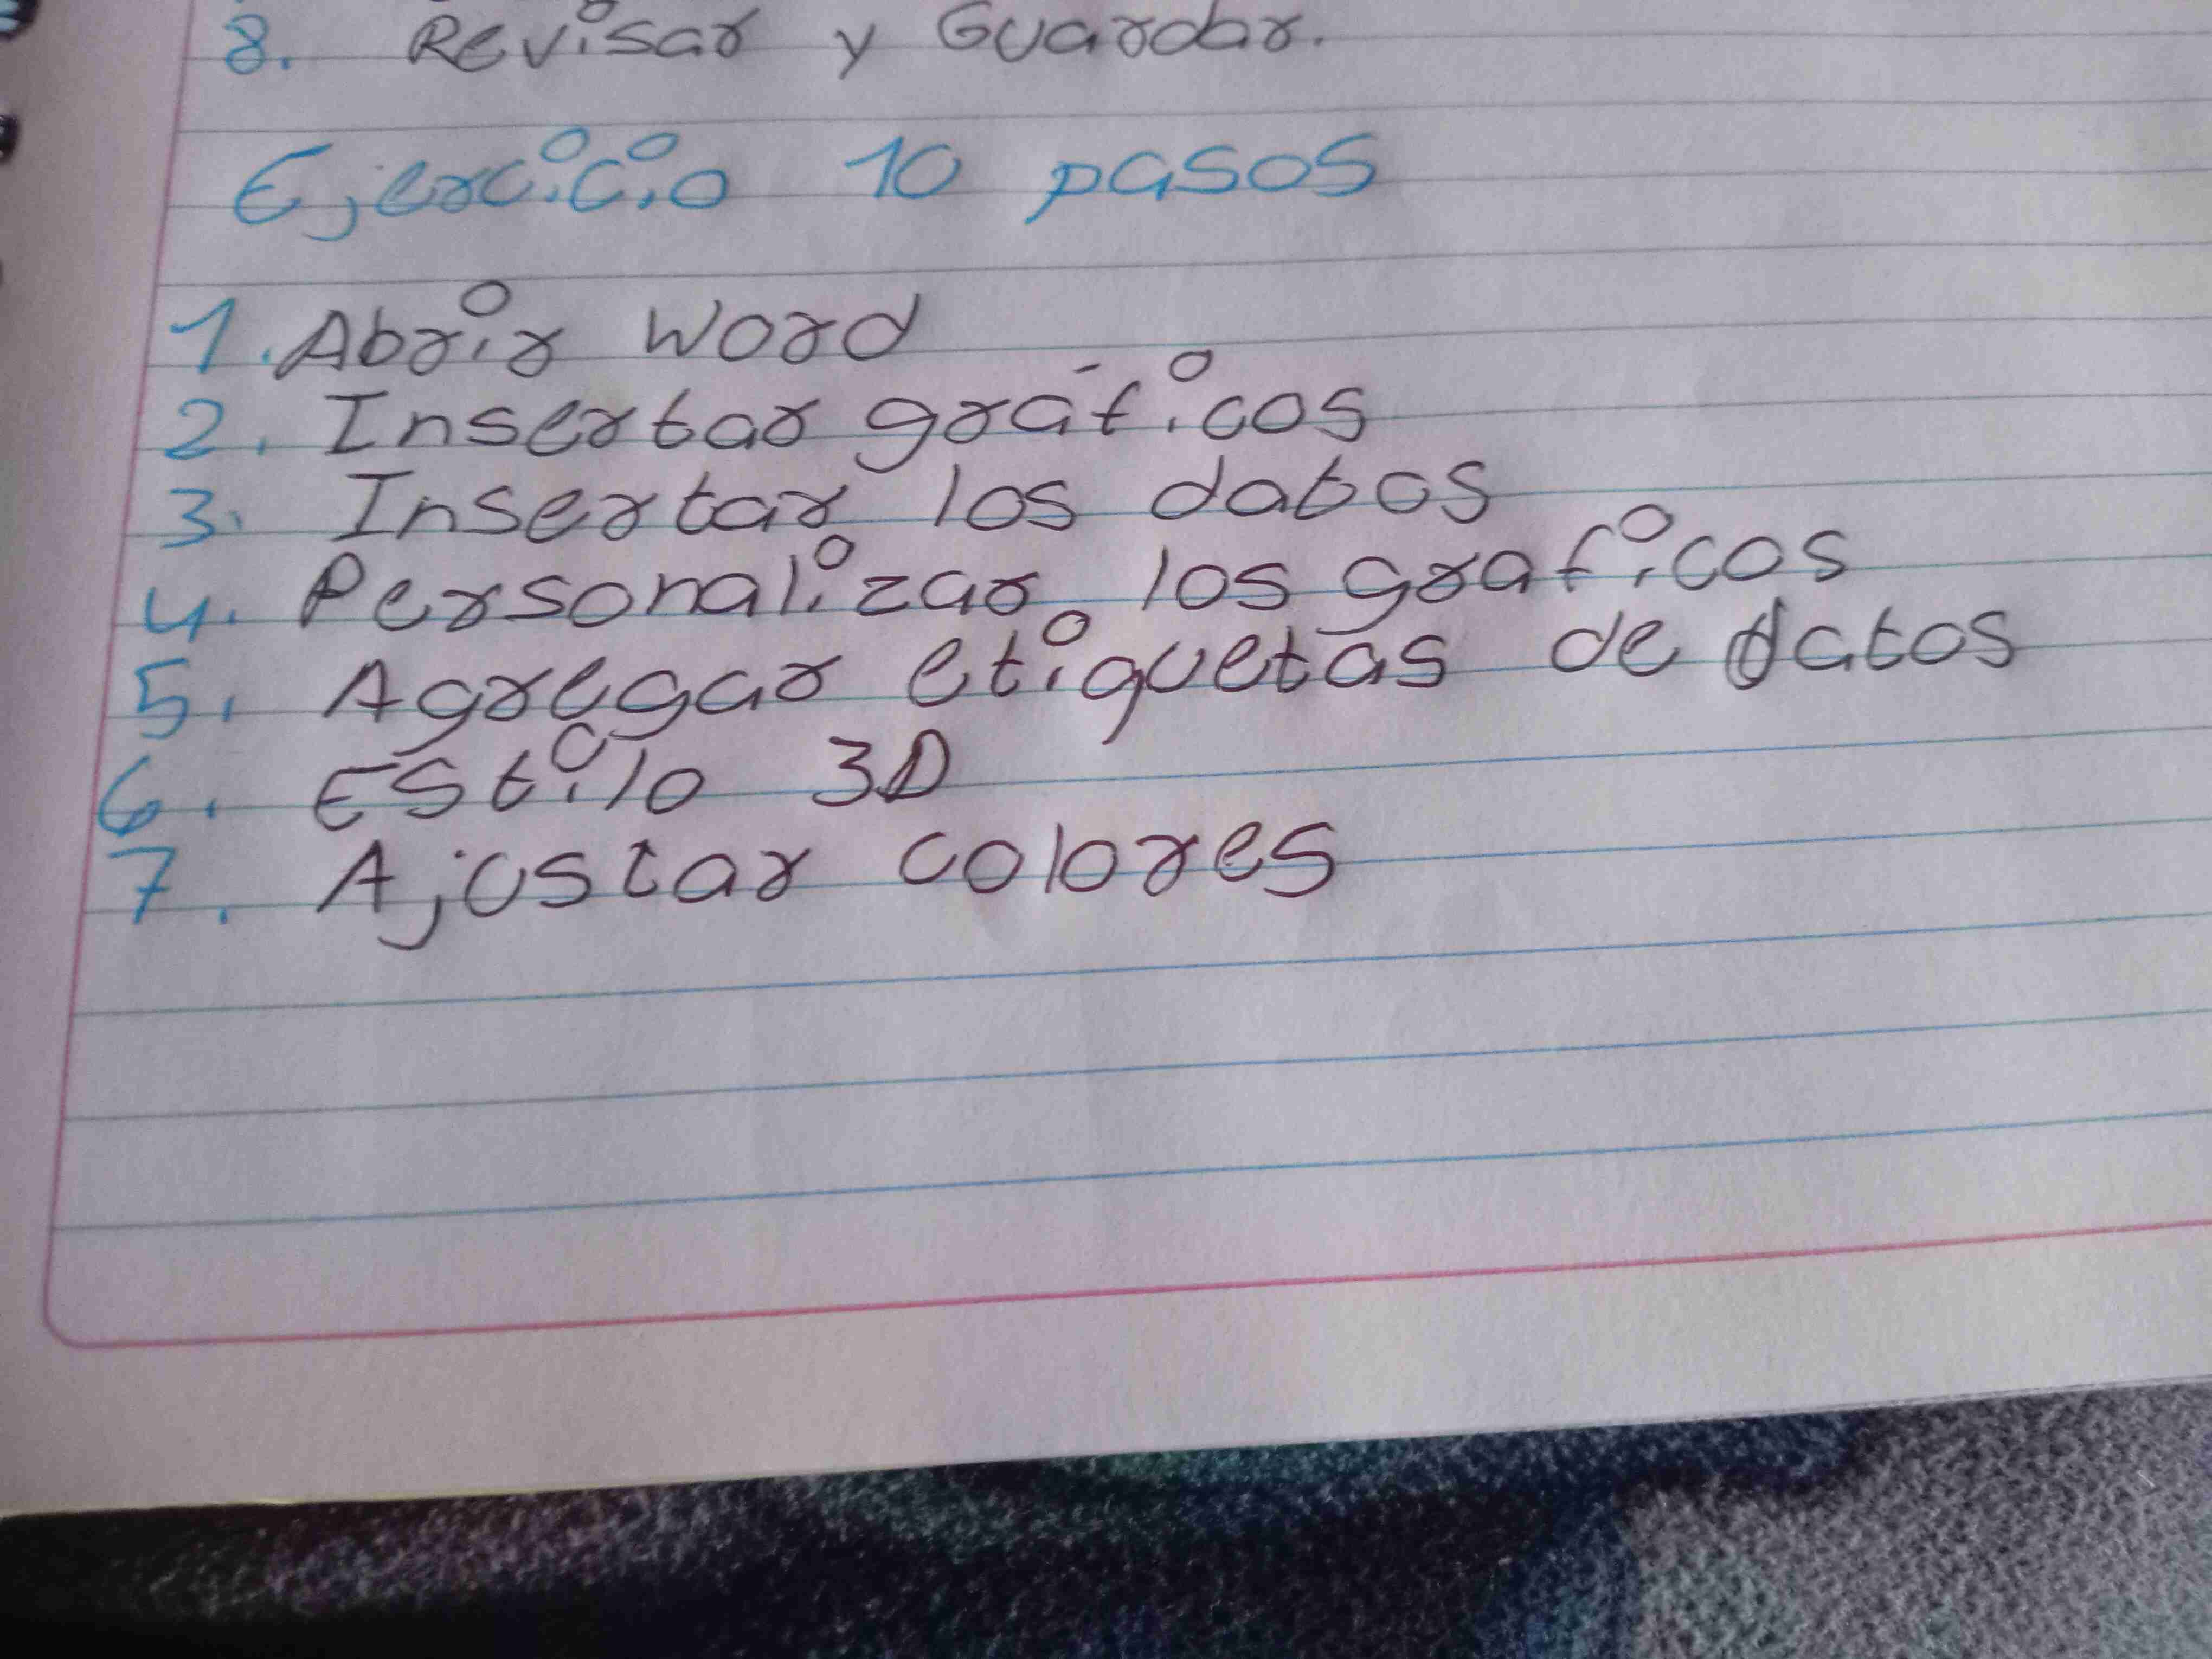 8. Revisar y Guardar.
Ejercicio 10 pasos
1. Abrir Word
2. Insertar gráficos
3. Insertar los datos
4. Personalizar los graficos
5. Agregar etiquetas de datos
6. Estilo 3D
7. Ajustar colores